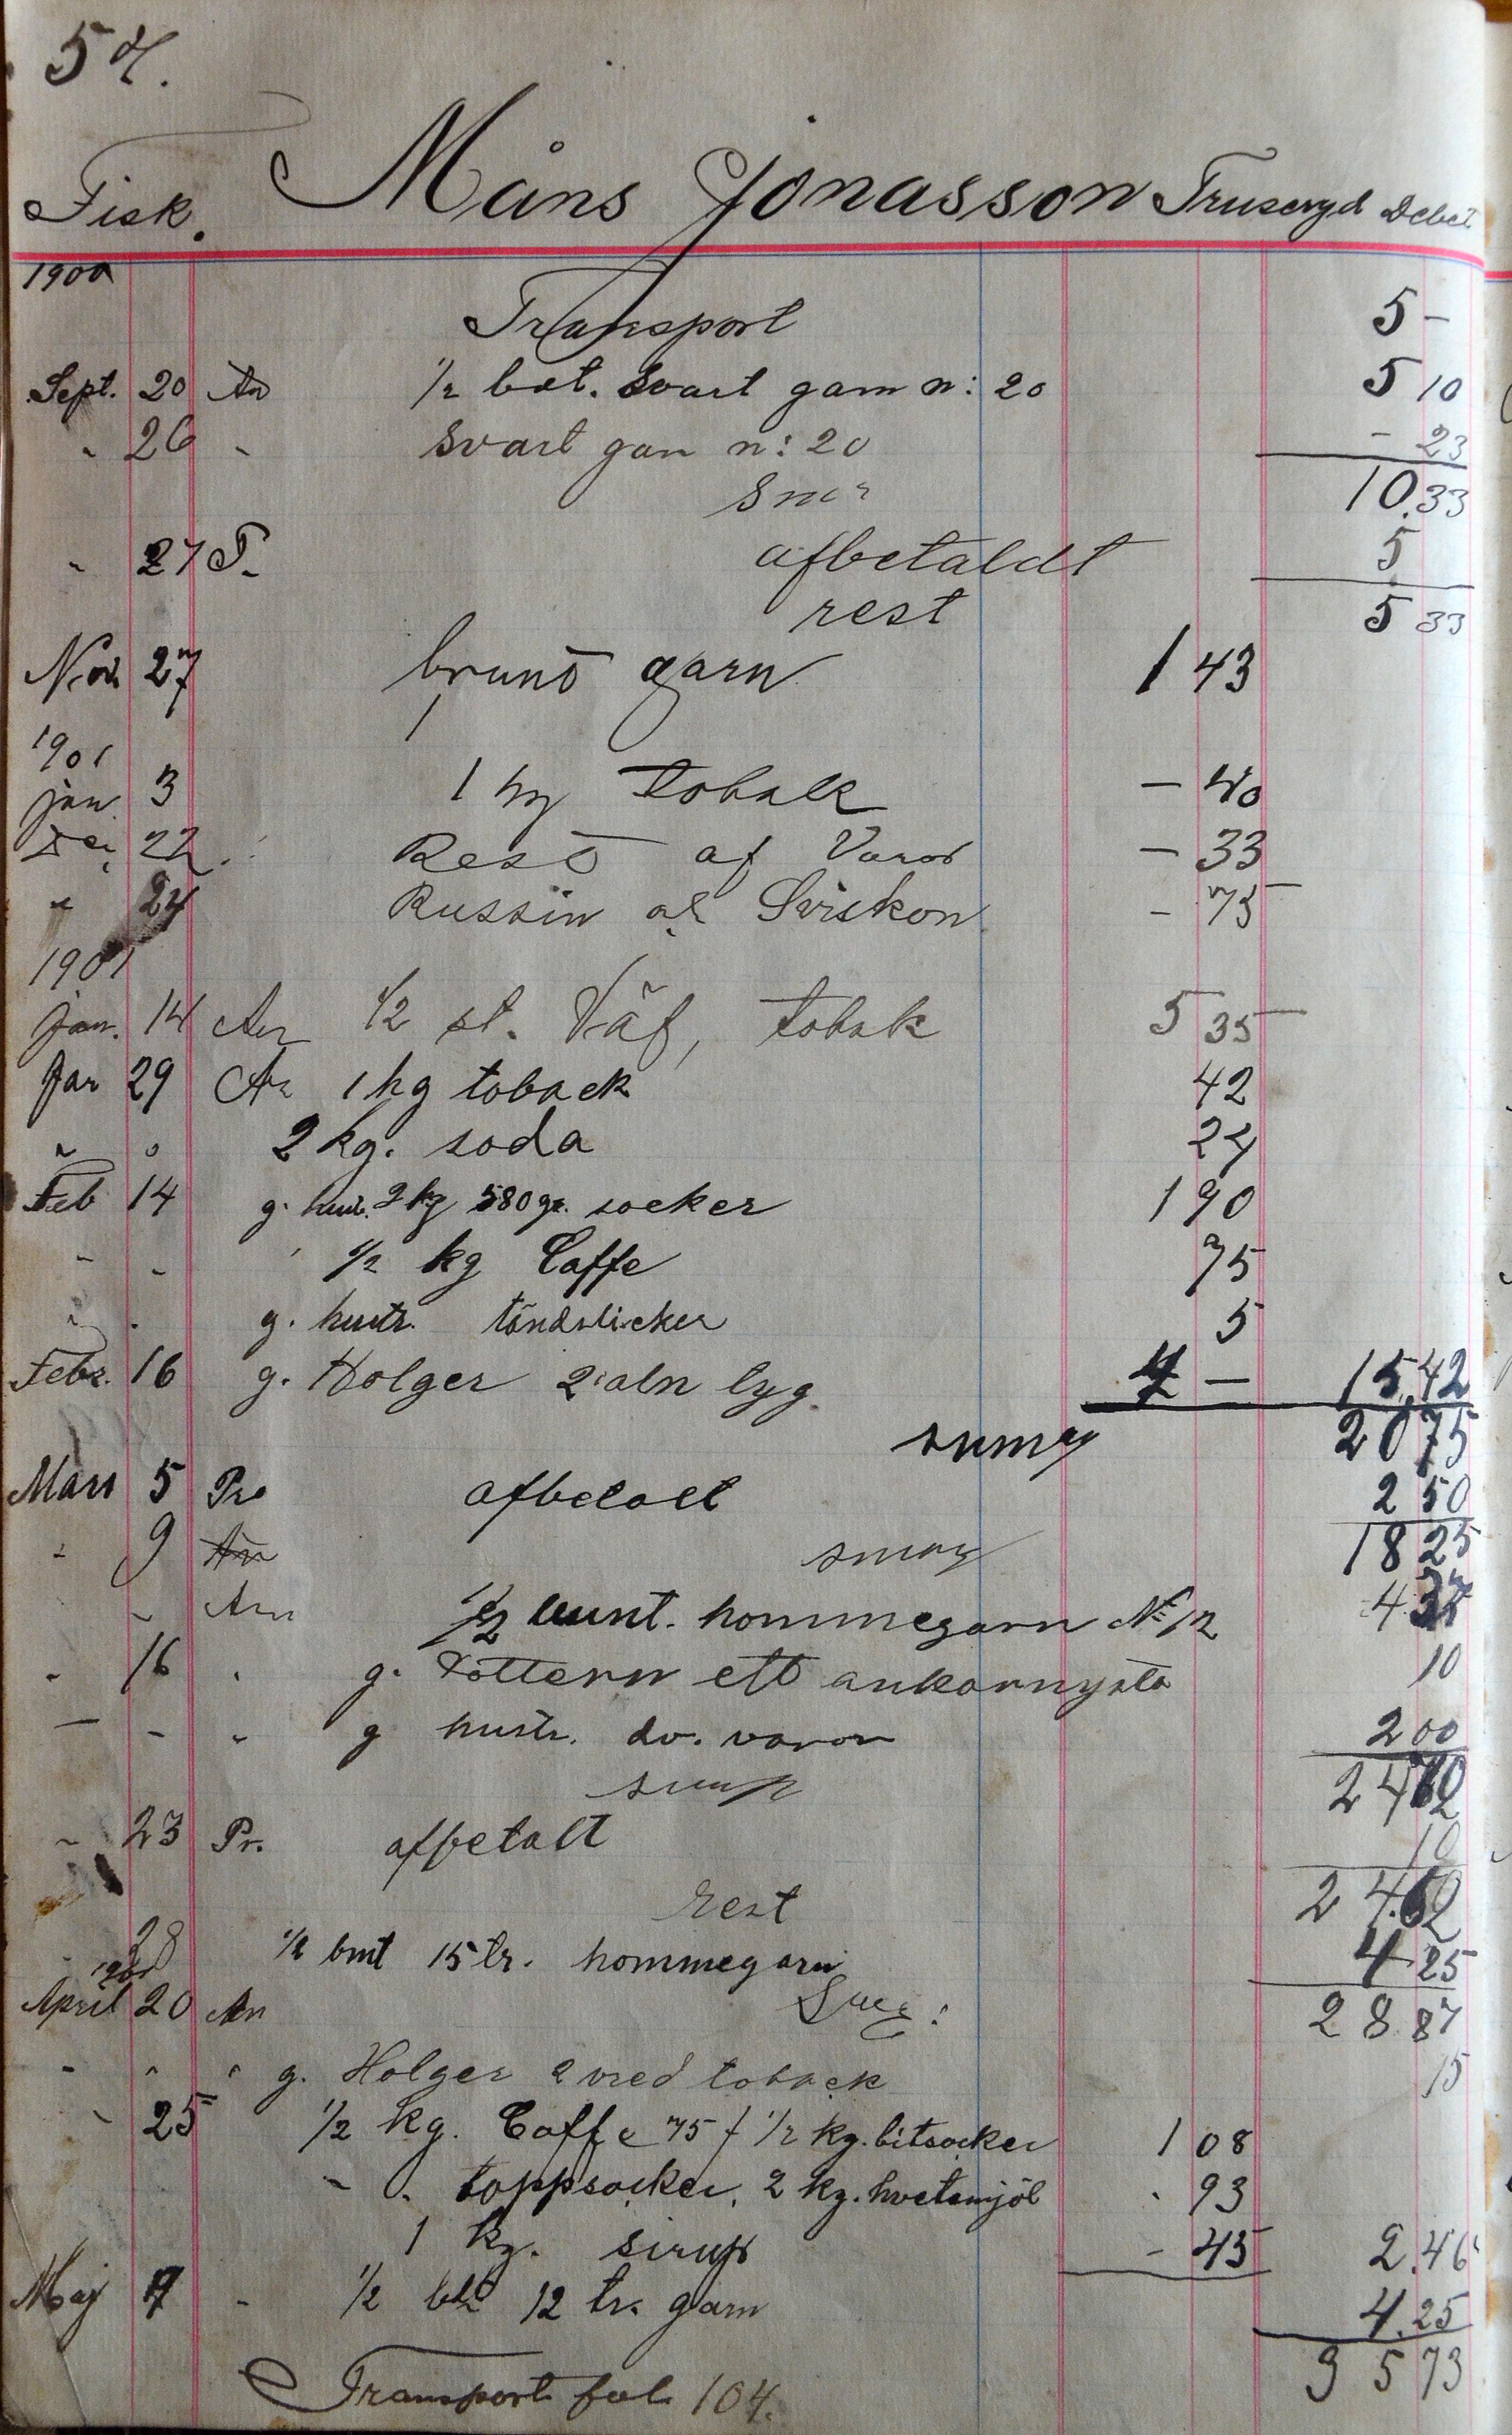 54.
Fisk. Måns Jonasson Truseryd Debet
1900
Transport 5 -
Sept. 20 An 1/2 bet. svart garn n: 20 5 10
" 26 " svart gan n: 20 - 23
10.33
" 27 afbetaldt 5
rest 5 33
Nov 27 brunt garn 1 43
1901
jan 3 1 hg tobak - 40
22 Rest af Varor - 33
" 24 Russin ock Sviskon - 75
1901
jan. 14 An 1/2 st. Väf, tobak 5 35
Jan 29 An 1 hg toback 42
" " 2 kg. soda 24
Feb 14 g. hust. 2 kg 580 gr. socker 1 90
- - 1/2 kg Caffe 75
g. hustr. tändstickor 5
Febr. 16 g. Holger 2 aln tyg. 4 - 15.42
suma 20 75
Mars 5 Pr afbetalt 2 50
" 9 An suma 18 25
" An 1/2 bunt. hommegarn No 12 4.37
" 16 " g. Dottern ett ankarnysta 10
- - " g hustr. div. varor 2 00
24 62
" 23 Pr. afbetalt 10
rest 24.62
28 1/2 bnt 15 tr. hommegarn 4 25
1901
April 20 An 28.87
" " " g. Holger 2 vred toback 15
" 25 1/2 kg. Caffe 75 f 1/2 kg. bitsocker 1 08
" " toppsocker, 2 kg. hvetemjöl " 93
1 kg. sirup - 45 2.46
Maj 7 " 1/2 bt 12 tr. garn 4.25
35 73
Transport fol. 104.